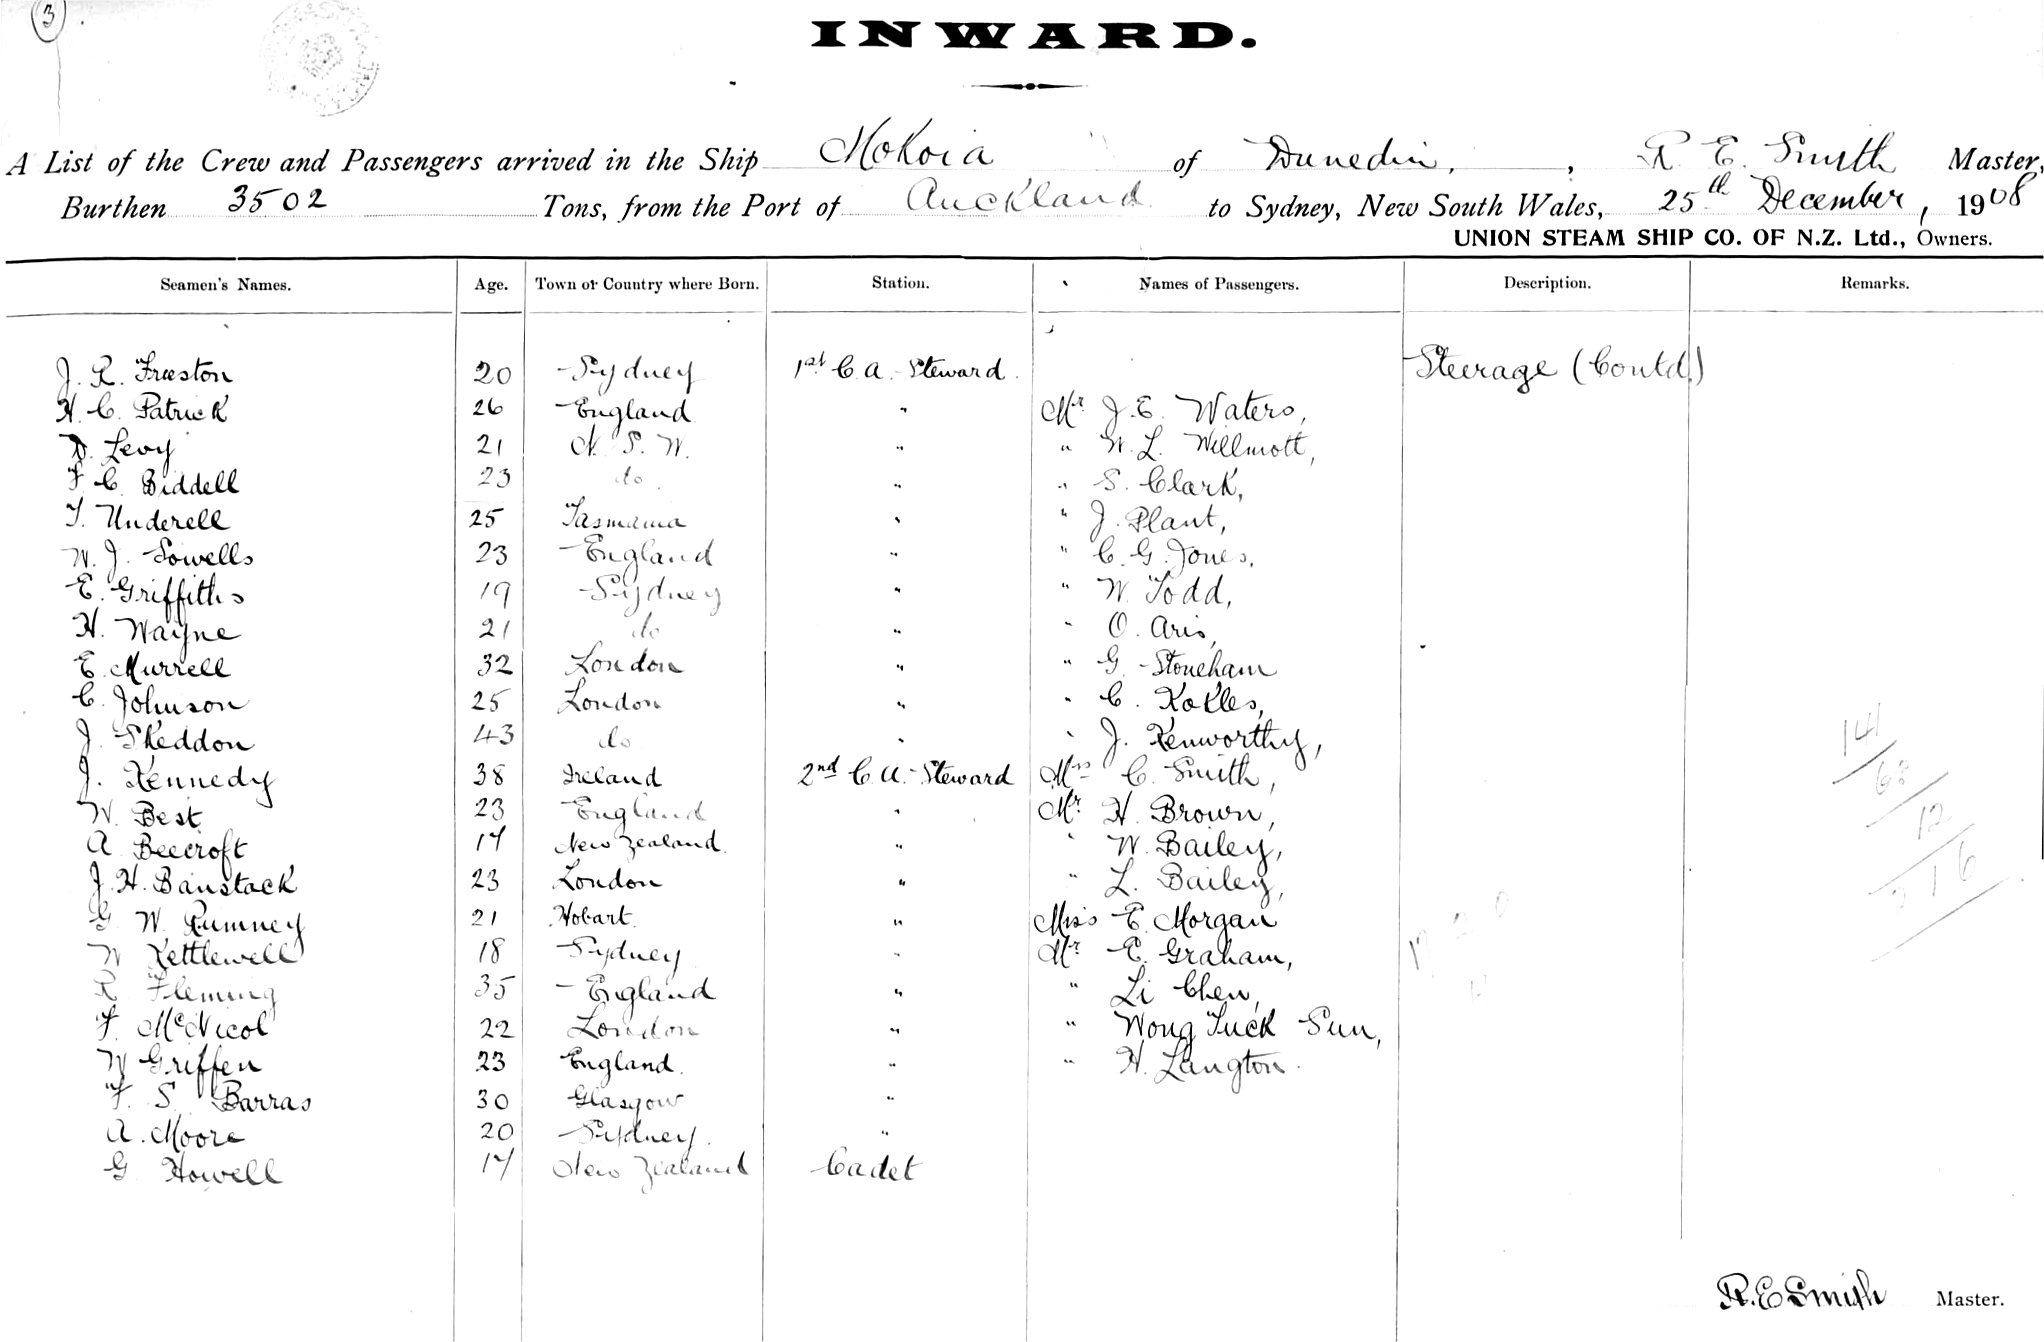 3
INWARD.
A List of the Crew and Passengers arrived in the Ship Mokoia of Dunedin, , R. E. Smith Master,
Burthen 3502 Tons, from the Port of Auckland to Sydney, New South Wales, 25th December, 1908
UNION STEAM SHIP CO. OF N.Z. Ltd., Owners.
Seamen's Names. Age. Town or Country where Born. Station. Names of Passengers. Description. Remarks.
J. R. Freeston 20 Sydney 1st C. A. Steward Steerage (Contd.)
H. C. Patrick 26 England " Mr J. E. Waters,
D. Levy 21 N. S. W. " " W. L. Willmott,
F C. Biddell 23 do " " S. Clark,
T. Underell 25 Tasmania " " J. Plant,
W. J. Sowells 23 England " " C. G. Jones,
E. Griffiths 19 Sydney " " W. Todd,
H. Wayne 21 do " " O. Aris,
E. Murrell 32 London " " G. Stoneham
C. Johnson 25 London " " C. Kokles,
J. Skeddon 43 do " " J. Kenworthy,
J. Kennedy 38 Ireland 2nd C. A. Steward Mrs C. Smith,
W. Best 23 England " Mr H. Brown,
A. Beecroft 17 New Zealand " " W. Bailey,
J. H. Banstack 23 London " " L. Bailey,
G. W. Rumney 21 Hobart " Miss E. Morgan
W Kettlewell 18 Sydney " Mr E. Graham,
R. Fleming 35 England " " Li Chen,
F. McNicol 22 London " " Wong Tuck Sun,
W Griffen 23 England. " " H. Langton.
F. S. Barras 30 Glasgow "
A. Moore 20 Sydney. "
G Howell 17 New Zealand Cadet
141
63
12
216
R. E Smith Master.